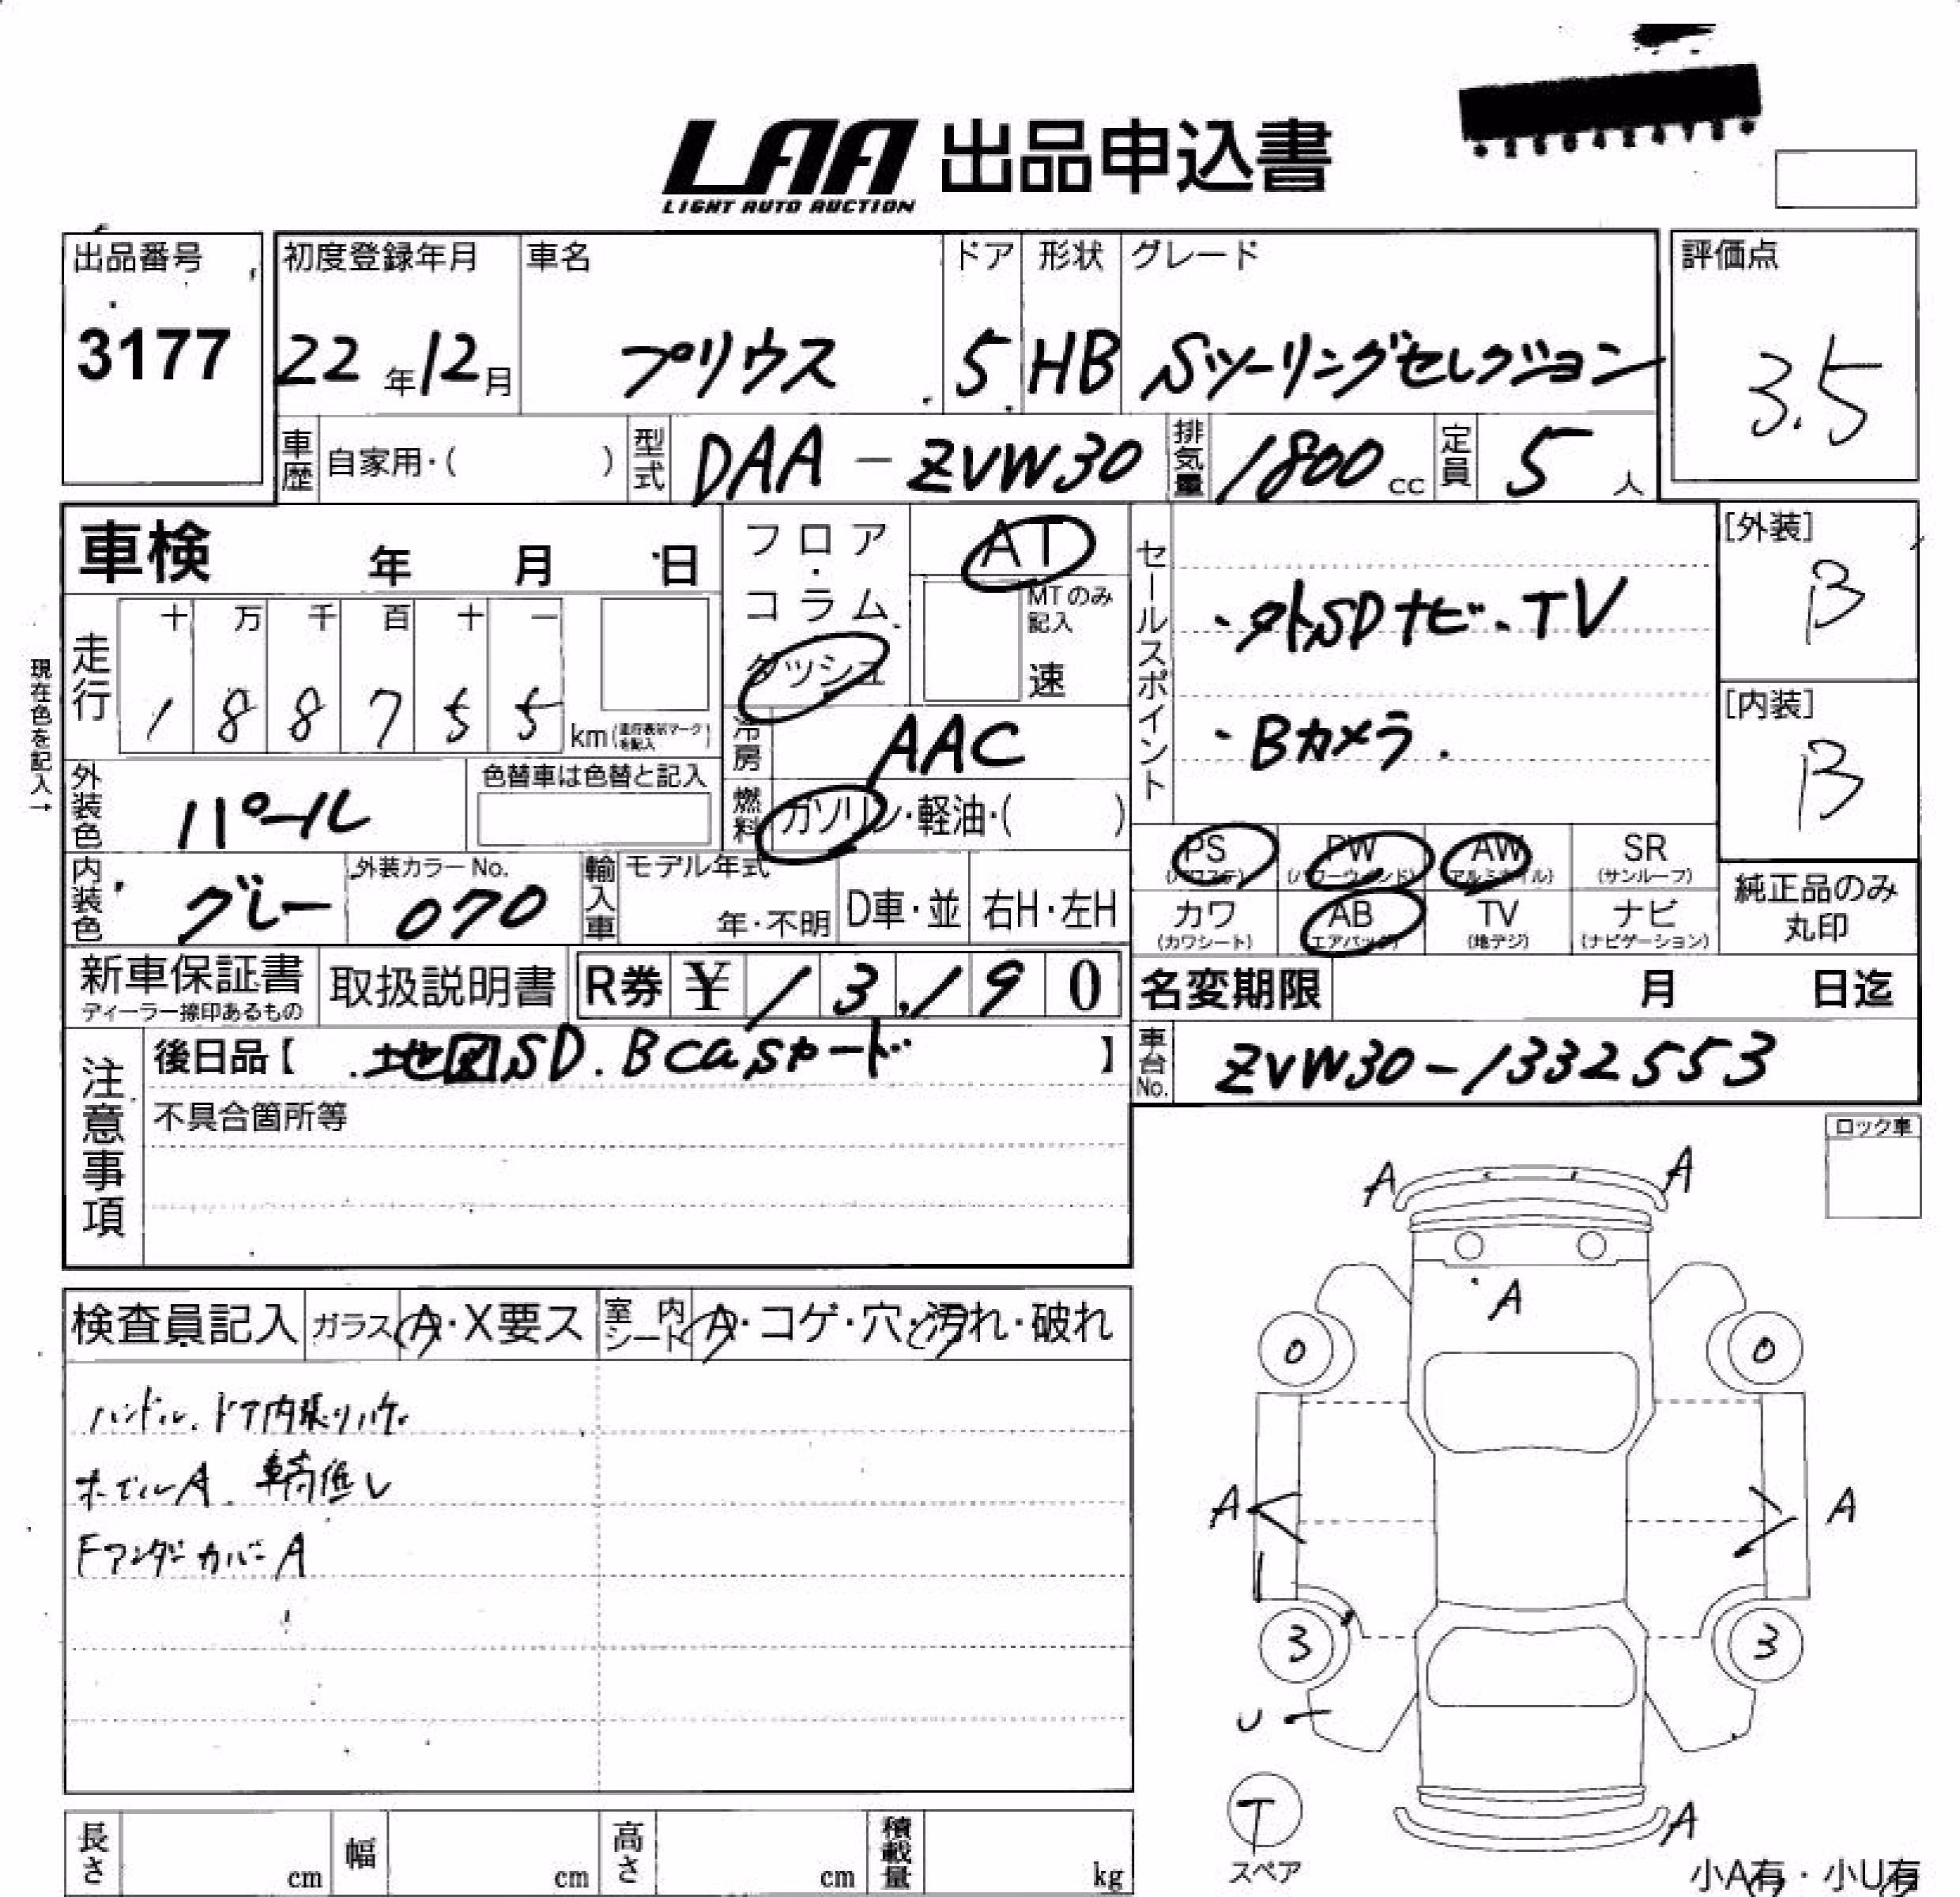 LAA 出品申込書
LIGHT AUTO AUCTION
出品番号
3177
初度登録年月
22年12月
車名
プリウス
ドア
5
形状
HB
グレード
Sツーリングセレクション
評価点
3.5
車歴 自家用・( )
型式 DAA-ZVW30
排気量 1800cc
定員 5人
車検 年 月 日
現在色を記入→
走行
十 万 千 百 十 一
1 8 8 7 5 5 km
フロア・コラム・ダッシュ
AT
MTのみ記入
速
冷房 AAC
燃料 ガソリン・軽油・( )
セールスポイント
・外SDナビ・TV
・Bカメラ.
[外装]
B
[内装]
B
外装色 パール
色替車は色替と記入
内装色 グレー
外装カラーNo.
070
輸入車 モデル年式
年・不明 D車・並 右H・左H
PS
PW
AW
SR
(パワステ) (パワーウィンド) (アルミホイル) (サンルーフ)
カワ
AB
TV
ナビ
(カワシート) (エアバッグ) (地デジ) (ナビゲーション)
純正品のみ
丸印
新車保証書
ディーラー捺印あるもの
取扱説明書
R券 ¥ 13,190
名変期限 月 日迄
車台No. ZVW30-1332553
注意事項
後日品【 地図SD.Bcasカード 】
不具合箇所等
ロック車
検査員記入 ガラス A・X要ス 室内シート A・コゲ・穴・汚れ・破れ
ハンドル、ドア内張りハゲ
ホイルA. 車高低し
FアンダーカバーA
A
A
A
0
0
A
A
3
3
U
T
スペア
A
長さ cm 幅 cm 高さ cm 積載量 kg
小A有・小U有